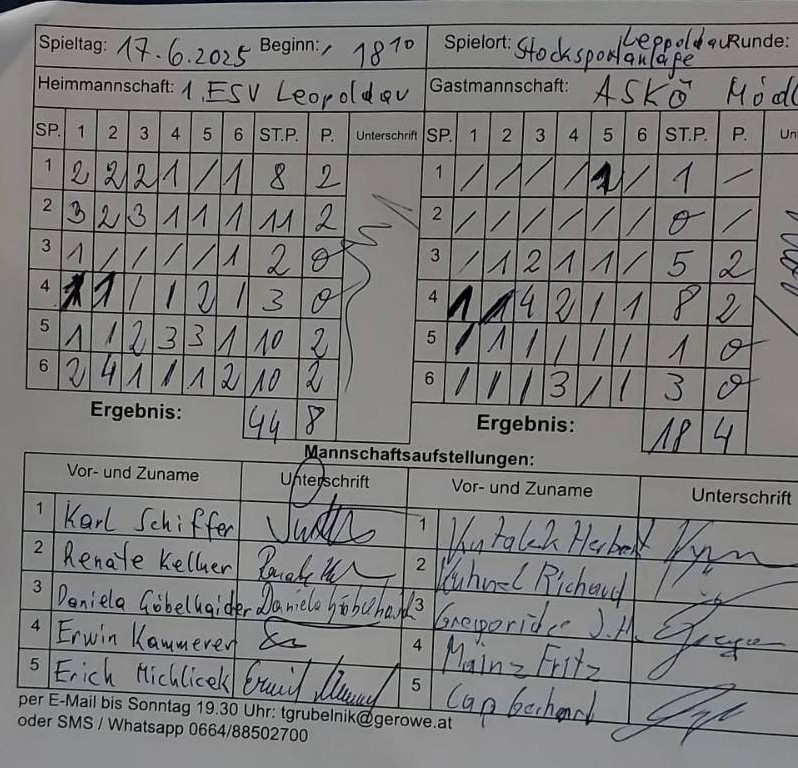 Spieltag: 17.6.2025 Beginn: 18 10 Spielort: Stocksportanlage Leopoldau Runde:
Heimmannschaft: 1. ESV Leopoldau Gastmannschaft: ASKÖ Mödl
SP. 1 2 3 4 5 6 ST.P. P. Unterschrift SP. 1 2 3 4 5 6 ST.P. P. Un
1 2 2 2 1 / 1 8 2 1 / / / / 1 / 1 /
2 3 2 3 1 1 1 11 2 2 / / / / / / 0 /
3 1 / / / / 1 2 0 3 / 1 2 1 1 / 5 2
4 1 / / 2 / 3 0 4 4 2 / 1 8 2
5 1 1 2 3 3 1 10 2 5 / 1 / / / / 1 0
6 2 4 1 / 1 2 10 2 6 / / / 3 / / 3 0
Ergebnis: 44 8 Ergebnis: 18 4
Mannschaftsaufstellungen:
Vor- und Zuname Unterschrift Vor- und Zuname Unterschrift
1 Karl Schiffer 1 Kutalek Herbert
2 Renate Kellner 2 Kuhnel Richard
3 Daniela Göbelhaider Daniela Göbelhaid 3 J.H.
4 Erwin Kammerer 4 Mainz Fritz
5 Erich Michlicek 5 Cap Gerhard
per E-Mail bis Sonntag 19.30 Uhr: tgrubelnik@gerowe.at
oder SMS / Whatsapp 0664/88502700